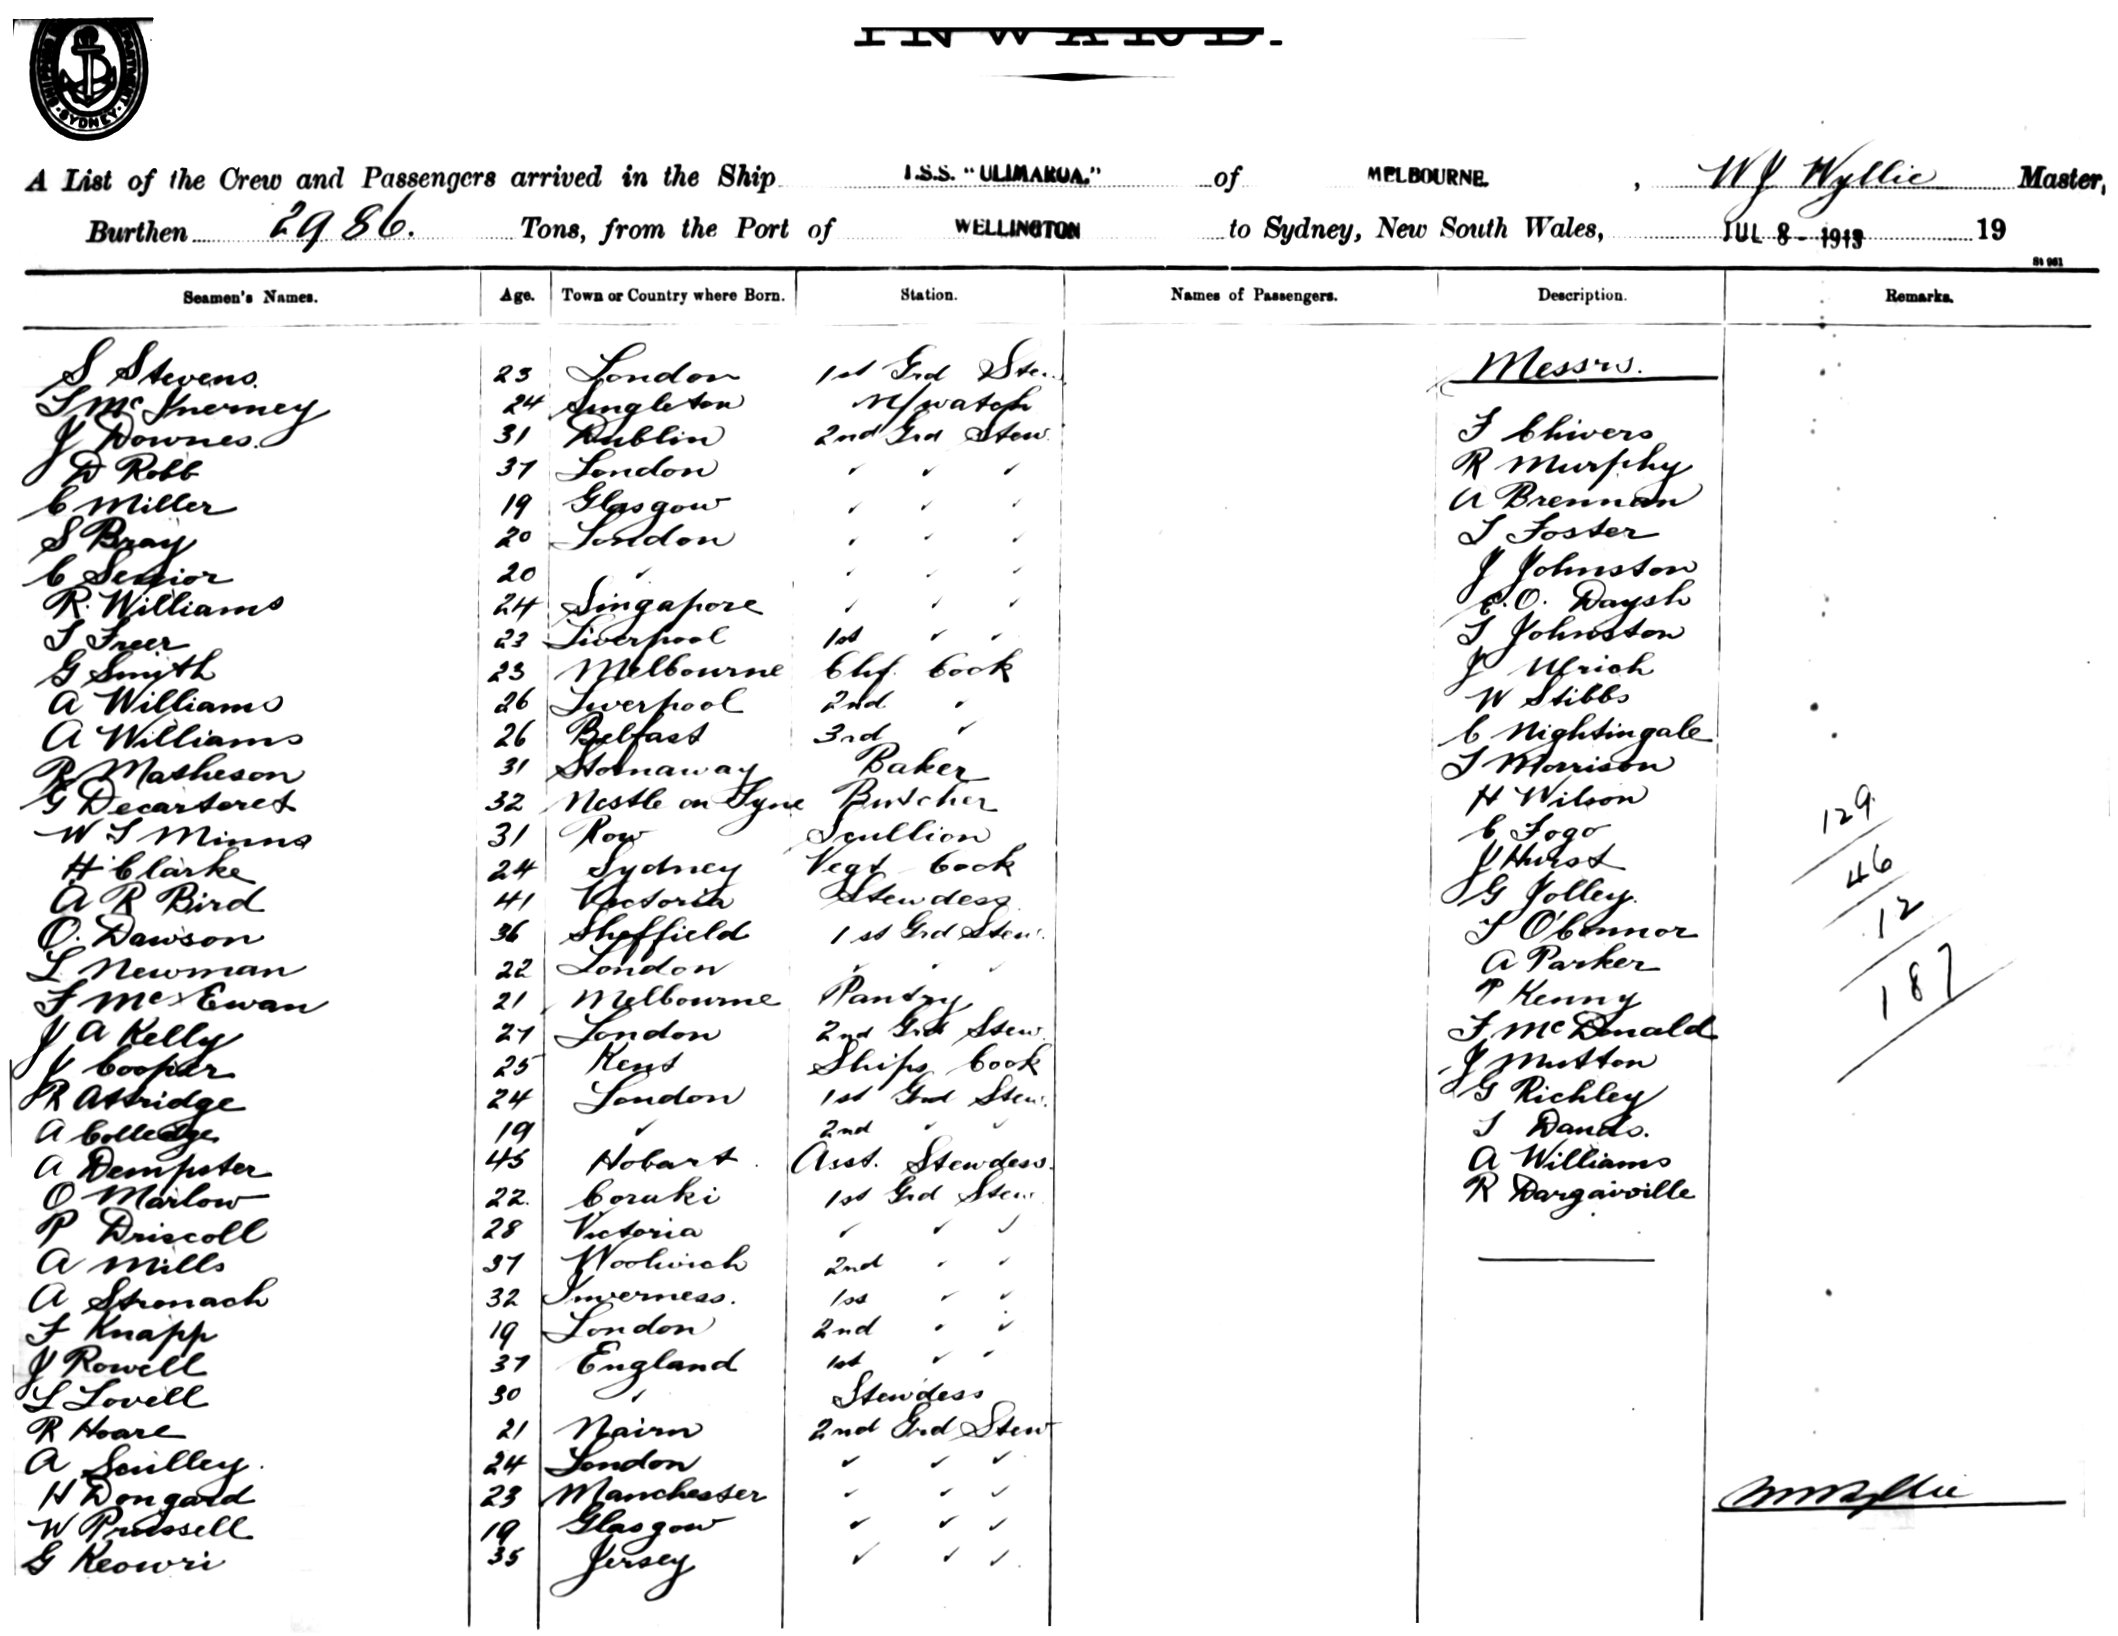 SHIPPING SYDNEY
INWARD.
A List of the Crew and Passengers arrived in the Ship T.S.S. "ULIMAROA." of MELBOURNE. , W J Wyllie Master,
Burthen 2986. Tons, from the Port of WELLINGTON to Sydney, New South Wales, JUL 8 - 1913 19
St 961
Seamen's Names. Age. Town or Country where Born. Station. Names of Passengers. Description. Remarks.
S Stevens 23 London 1st Grd Stew. Messrs.
T McInerney 24 Singleton N/watch
J Downes 31 Dublin 2nd Grd Stew. F Chivers
D Robb 37 London ✓ ✓ ✓ R Murphy
C Miller 19 Glasgow ✓ ✓ ✓ A Brennan
S Bray 20 London ✓ ✓ ✓ T Foster
C Senior 20 ✓ ✓ ✓ ✓ J Johnston
R. Williams 24 Singapore ✓ ✓ ✓ C. O. Daysh
T Freer 23 Liverpool 1st ✓ ✓ T Johnston
G Smyth 23 Melbourne Chf. Cook J Ulrich
A Williams 26 Liverpool 2nd ✓ W Stibbs
A Williams 26 Belfast 3rd ✓ C Nightingale
R Matheson 31 Stornaway Baker T Morrison
G Decarteret 32 Ncstle on Tyne Butcher H Wilson
W T Minns 31 Row Scullion C Fogo
H Clarke 24 Sydney Vegt Cook J Hurst
A R Bird 41 Victoria Stewdess G Jolley.
O. Dawson 36 Sheffield 1st Grd Stew. T O'Connor
L Newman 22 London ✓ ✓ ✓ A Parker
F McEwan 21 Melbourne Pantry P Kenny
J A Kelly 27 London 2nd Grd Stew. F McDonald
J Cooper 25 Kent Ships Cook J Mutton
R Attridge 24 London 1st Grd Stew. G Richley
A Colledge 19 ✓ 2nd ✓ ✓ T Dands.
A Dempster 45 Hobart Asst. Stewdess. A Williams
O Marlow 22. Coraki 1st Grd Stew R Dargaville
P Driscoll 28 Victoria ✓ ✓ ✓
A Mills 37 Woolwich 2nd ✓ ✓
A Stronach 32 Inverness. 1st ✓ ✓
F Knapp 19 London 2nd ✓ ✓
J Rowell 37 England 1st ✓ ✓
L Lovell 30 ✓ Stewdess
R Hoare 21 Nairn 2nd Grd Stew
A Scilley 24 London ✓ ✓ ✓
H Dongard 23 Manchester ✓ ✓ ✓
W Prussell 19 Glasgow ✓ ✓ ✓
G Keowri 35 Jersey ✓ ✓ ✓
129
46
12
187
W J Wyllie